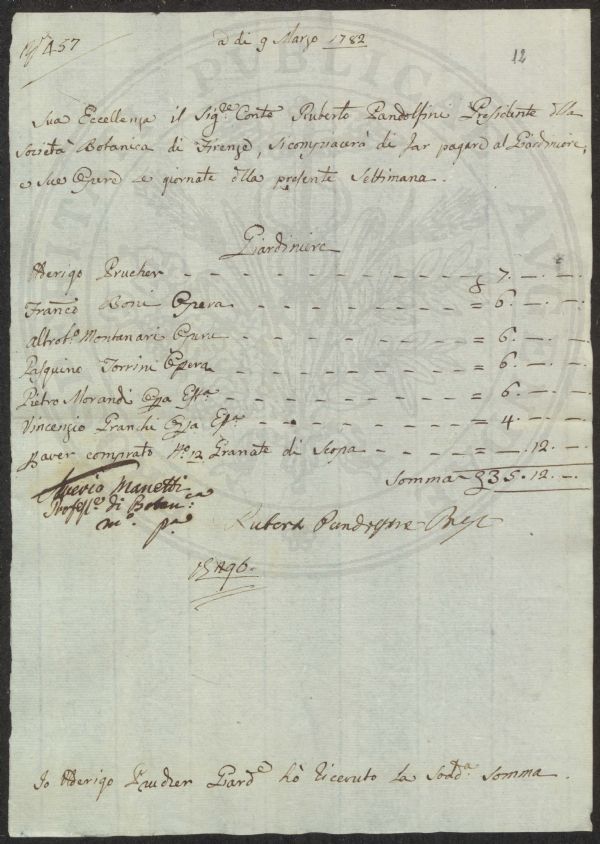 457
a di 9 Marzo 1782
12
Sua Eccellenza il Sig.re Conte Ruberto Pandolfini Presidente della
Società Botanica di Firenze, si compiacerà di far pagare al Giardiniere,
e sue Opere le giornate della presente Settimana.
Giardiniere
Aderigo Prucher - - - - - - - - - - - 7. — . —
Franco Boni Opera - - - - - - - - = 6. — . —
Altro to Montanari Opera - - - - - - = 6. — . —
Pasquino Torrini Opera - - - - - - - = 6. — . —
Pietro Morandi Opa - - - - - - - = 6. — . —
Vincenzio Granchi Opa - - - - - - = 4. — . —
P aver comprato No 12 Granate di Scopa - - - - = — . 12. —
Somma 35. 12. —
Saverio Manetti
Profess.e di Botan.ca
mo. pa
Ruberto Pandolfini Pres.
Io Aderigo Prucher Giard.e hò riceuto la Sodd.a Somma.